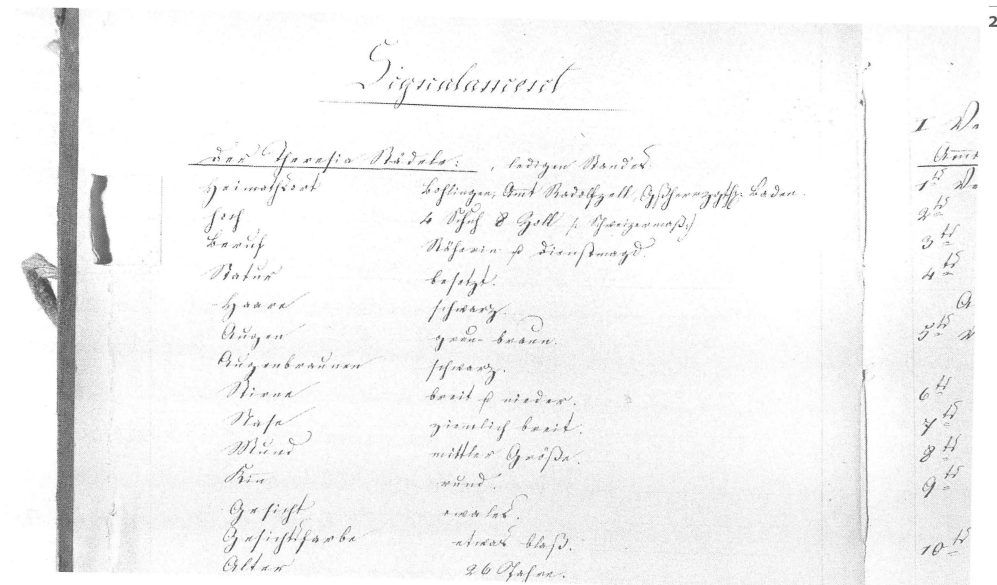 2
Signalement
Der Theresia Städele: , ledigen Standes.
Heimathsort Bohlingen, Amt Radolfzell, Baden.
hoch 4 Schuh 8 Zoll /: Schweizermaß:/
Beruf Näherin & Dienstmagd.
Statur besetzt.
Haare schwarz.
Augen grau-braun.
Augenbraunen schwarz.
Stirne breit & nieder.
Nase ziemlich breit.
Mund mittler Größe.
Kin rund.
Gesicht ovales.
Gesichtsfarbe etwas blaß.
Alter 26 Jahre.
I Ve
Amt
1ts Ve
2ts
3ts
4ts
A
5ts
6ts
7ts
8ts
9ts
10ts